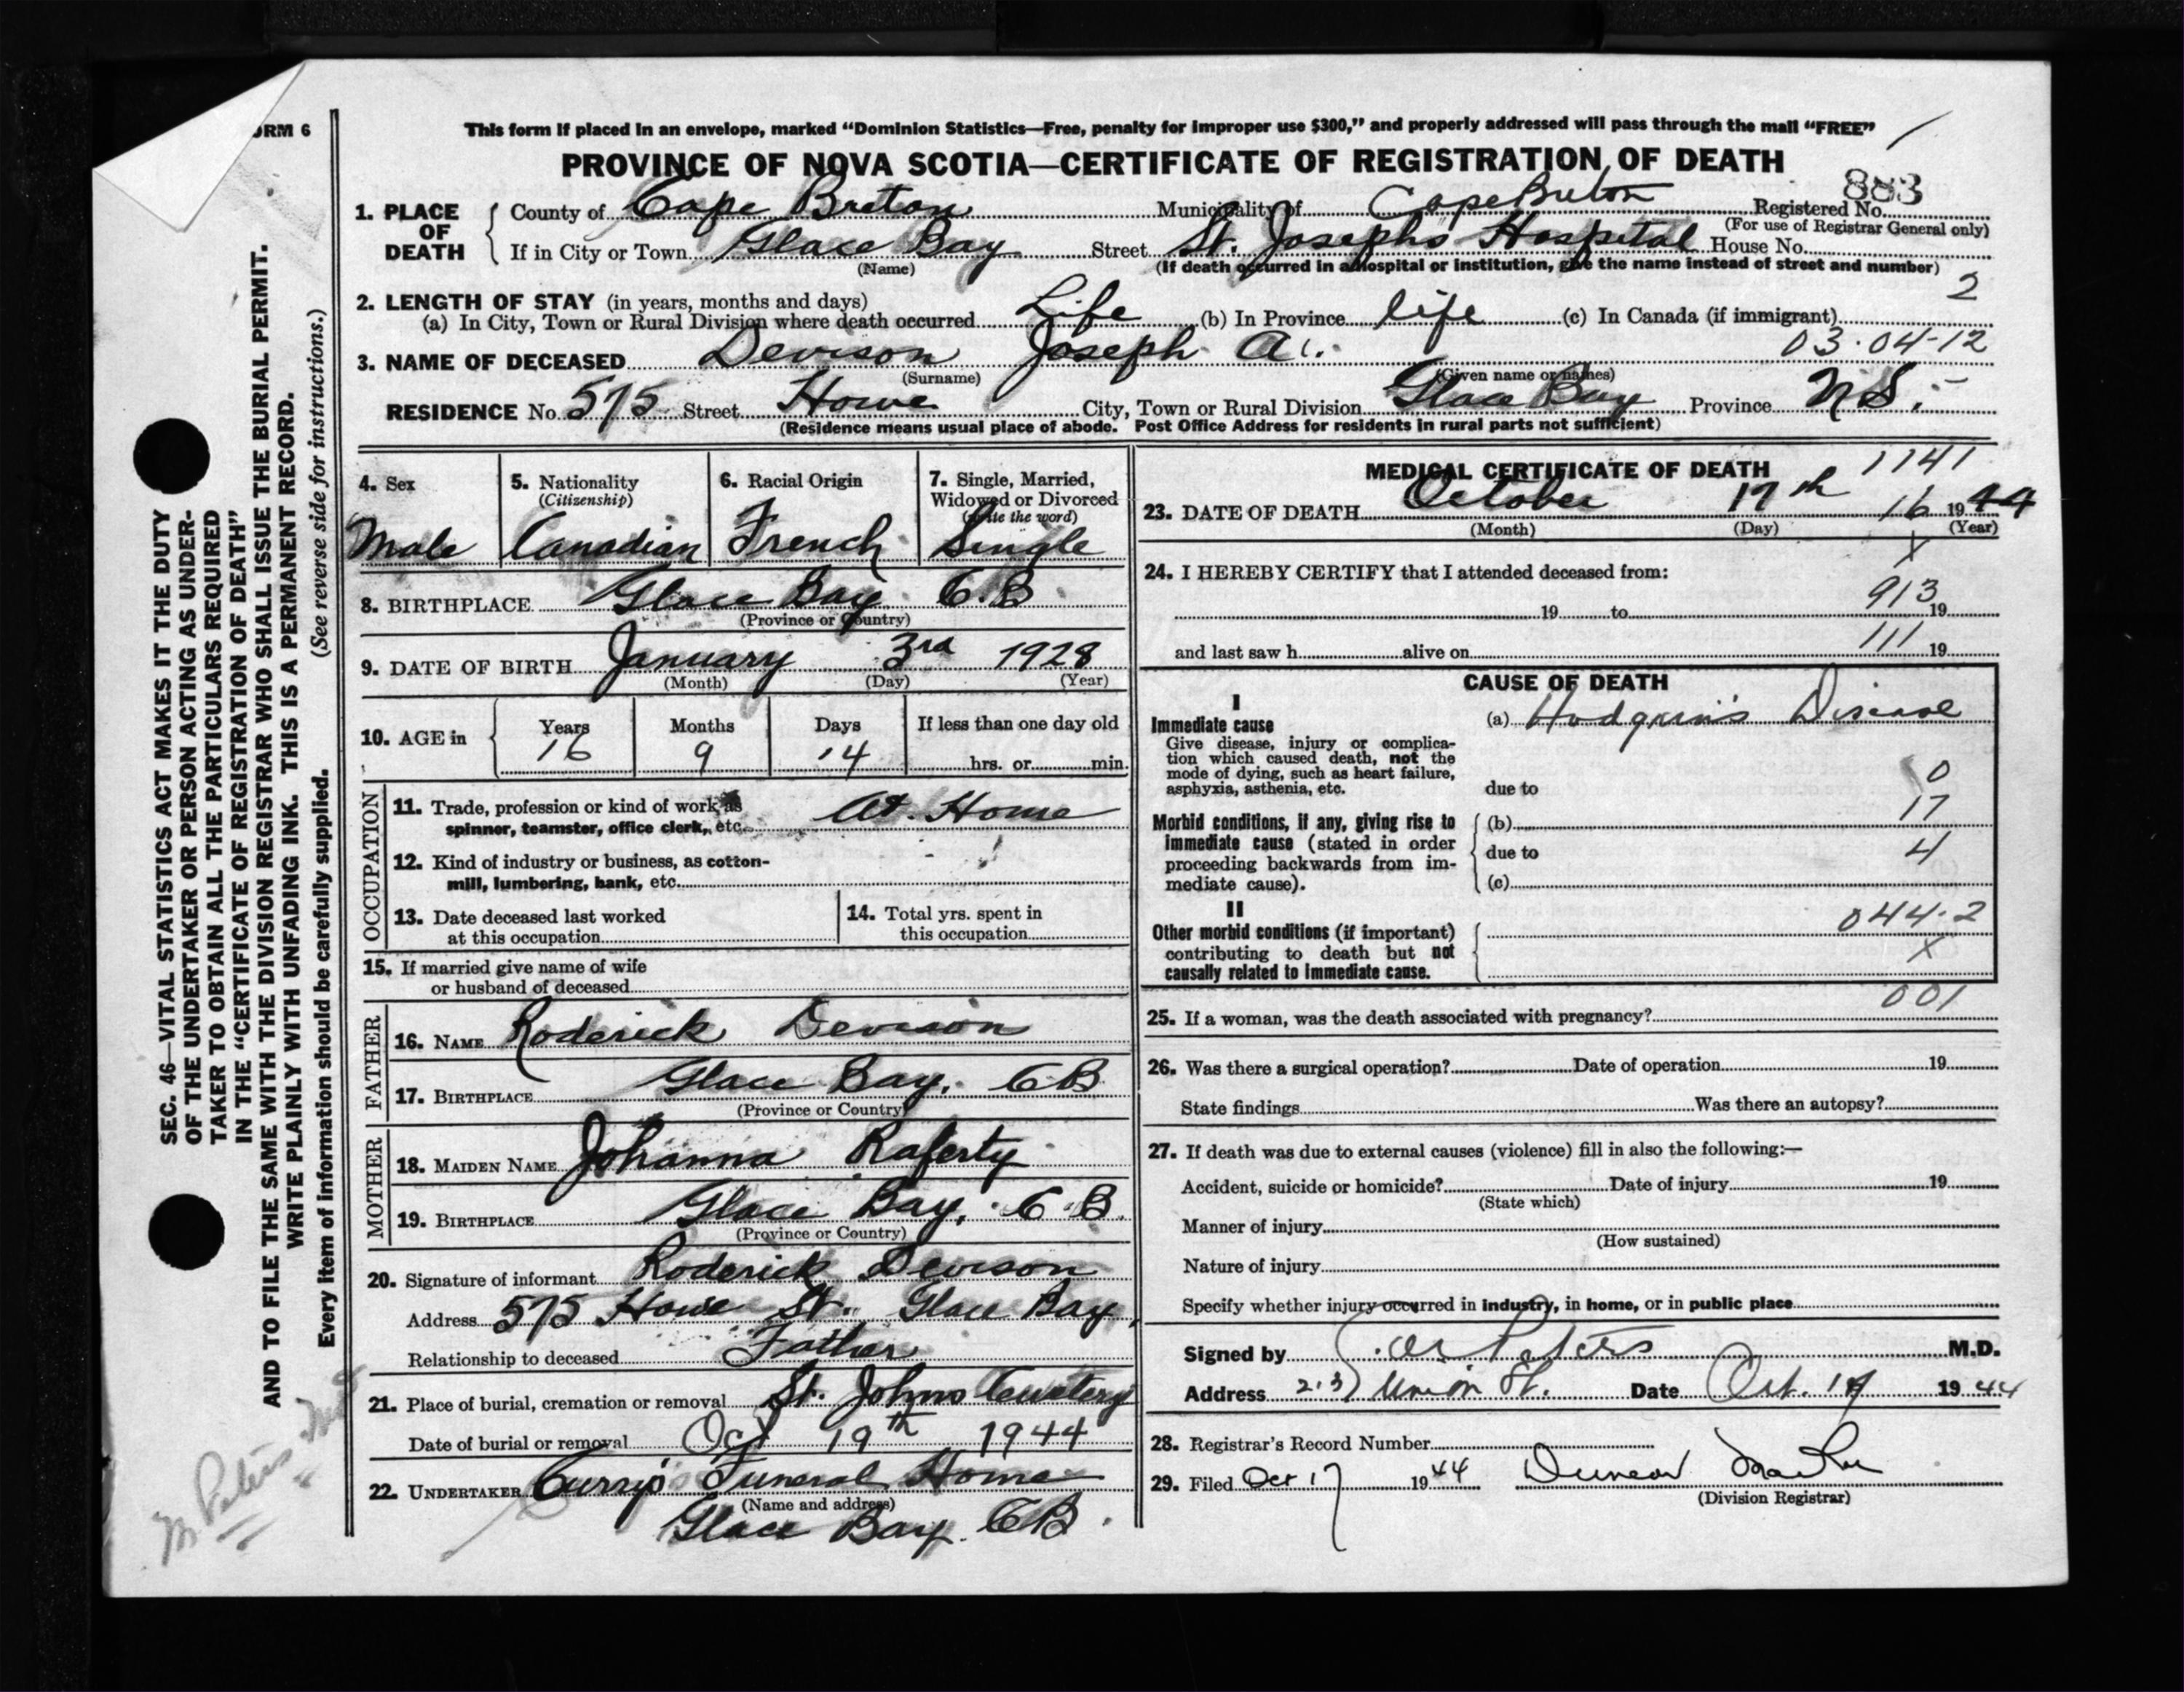 FORM 6
This form if placed in an envelope, marked “Dominion Statistics—Free, penalty for improper use $300,” and properly addressed will pass through the mail “FREE”
PROVINCE OF NOVA SCOTIA—CERTIFICATE OF REGISTRATION OF DEATH
883
1. PLACE OF DEATH
County of Cape Breton Municipality of Cape Breton Registered No.
(For use of Registrar General only)
If in City or Town Glace Bay Street St. Josephs Hospital House No.
(Name) (If death occurred in a hospital or institution, give the name instead of street and number)
2
2. LENGTH OF STAY (in years, months and days)
(a) In City, Town or Rural Division where death occurred Life (b) In Province life (c) In Canada (if immigrant)
03-04-12
3. NAME OF DECEASED Devison Joseph A.
(Surname) (Given name or names)
RESIDENCE No. 575 Street Howe City, Town or Rural Division Glace Bay Province N.S.
(Residence means usual place of abode. Post Office Address for residents in rural parts not sufficient)
4. Sex
Male
5. Nationality
(Citizenship)
Canadian
6. Racial Origin
French
7. Single, Married,
Widowed or Divorced
(write the word)
Single
8. BIRTHPLACE Glace Bay C.B.
(Province or Country)
9. DATE OF BIRTH January 3rd 1928
(Month) (Day) (Year)
10. AGE in
Years Months Days If less than one day old
16 9 14 hrs. or min.
OCCUPATION
11. Trade, profession or kind of work as
spinner, teamster, office clerk, etc. At Home
12. Kind of industry or business, as cotton-
mill, lumbering, bank, etc.
13. Date deceased last worked
at this occupation
14. Total yrs. spent in
this occupation
15. If married give name of wife
or husband of deceased
FATHER
16. NAME Roderick Devison
17. BIRTHPLACE Glace Bay, C.B.
(Province or Country)
MOTHER
18. MAIDEN NAME Johanna Raferty
19. BIRTHPLACE Glace Bay, C.B.
(Province or Country)
20. Signature of informant Roderick Devison
Address 575 Howe St. Glace Bay
Relationship to deceased Father
21. Place of burial, cremation or removal St. Johns Cemetery
Date of burial or removal Oct 19th 1944
22. UNDERTAKER Curry's Funeral Home
(Name and address)
Glace Bay C.B.
MEDICAL CERTIFICATE OF DEATH
1141
23. DATE OF DEATH October 17th 16 1944
(Month) (Day) (Year)
X
24. I HEREBY CERTIFY that I attended deceased from:
913
19 to 19
111
and last saw h alive on 19
CAUSE OF DEATH
I
Immediate cause
Give disease, injury or complica-
tion which caused death, not the
mode of dying, such as heart failure,
asphyxia, asthenia, etc.
(a) Hodgkin's Disease
0
due to
17
Morbid conditions, if any, giving rise to
immediate cause (stated in order
proceeding backwards from im-
mediate cause).
(b)
4
due to
(c)
II
Other morbid conditions (if important)
contributing to death but not
causally related to immediate cause.
044-2
X
001
25. If a woman, was the death associated with pregnancy?
26. Was there a surgical operation? Date of operation 19
State findings Was there an autopsy?
27. If death was due to external causes (violence) fill in also the following:—
Accident, suicide or homicide? Date of injury 19
(State which)
Manner of injury
(How sustained)
Nature of injury
Specify whether injury occurred in industry, in home, or in public place
Signed by Peters M.D.
Address Union St. Date Oct. 17 1944
28. Registrar's Record Number
29. Filed Oct 17 1944 Duncan
(Division Registrar)
SEC. 46—VITAL STATISTICS ACT MAKES IT THE DUTY
OF THE UNDERTAKER OR PERSON ACTING AS UNDER-
TAKER TO OBTAIN ALL THE PARTICULARS REQUIRED
IN THE “CERTIFICATE OF REGISTRATION OF DEATH”
AND TO FILE THE SAME WITH THE DIVISION REGISTRAR WHO SHALL ISSUE THE BURIAL PERMIT.
WRITE PLAINLY WITH UNFADING INK. THIS IS A PERMANENT RECORD.
Every item of information should be carefully supplied. (See reverse side for instructions.)
M Peters